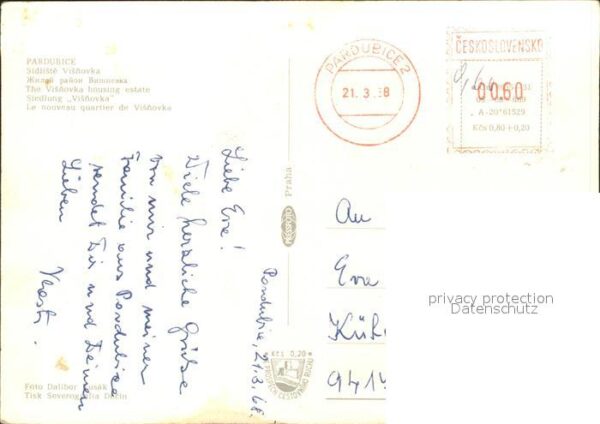 PARDUBICE
Sídliště Višňovka
Жилой район Вишневка
The Višňovka housing estate
Siedlung „Višňovka"
Le nouveau quartier de Višňovka
PARDUBICE 2
21. 3. 68
ČESKOSLOVENSKO
00.60
A-20*61529
Kčs 0,60 + 0,20
Pardubice, 21.3.68.
Liebe Eva!
Viele herzliche Grüße
von mir und meiner
Familie aus Pardubice
sendet Dir und Deinen
Lieben
Vlasti.
PRESSFOTO
Praha
An
Eva
9414
privacy protection
Datenschutz
Kčs 0,20
PROSPĚCH CESTOVNÍHO RUCHU
Foto Dalibor Kusák
Tisk Severografia Děčín